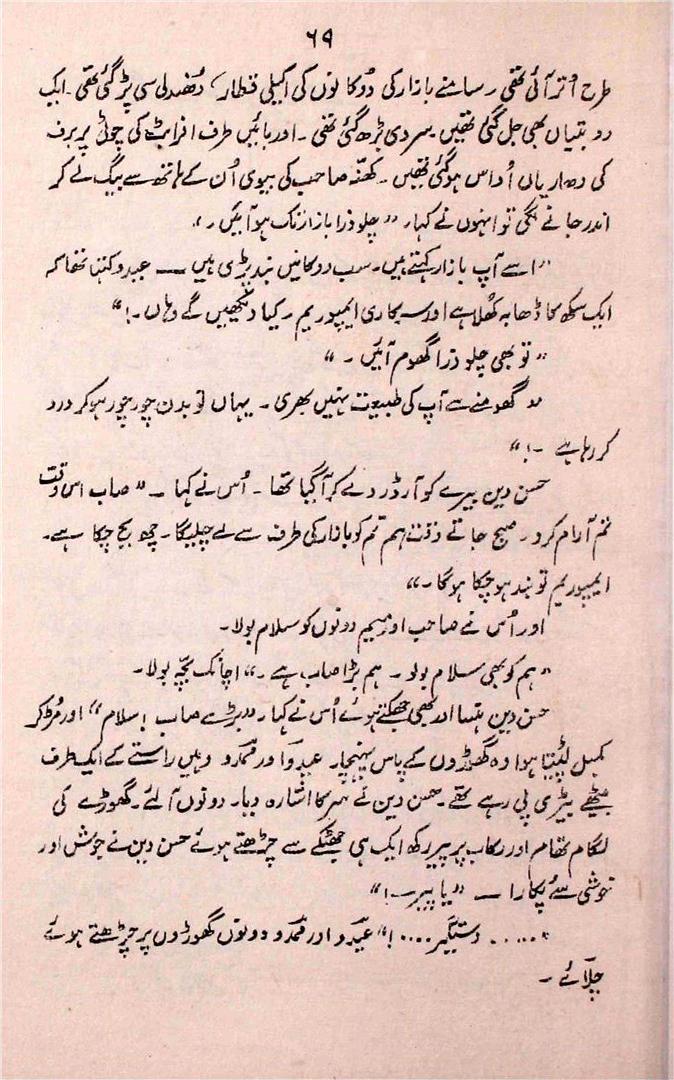 ۶۹
طرح اُتر آئی تھی ۔ سامنے بازار کی دُوکانوں کی اکیلی قطار، دُھندلی سی پڑ گئی تھی ۔ ایک
دو بتیاں بھی جل گئی تھیں۔ سردی بڑھ گئی تھی ۔ اور بائیں طرف افراہٹ کی چوٹی پر برف
کی دھاریاں اُداس ہو گئی تھیں ۔ کھنّہ صاحب کی بیوی اُن کے ہاتھ سے بیگ لے کر
اندر جانے لگی تو انہوں نے کہا، "چلو ذرا بازار تک ہو آئیں ۔"
"اسے آپ بازار کہتے ہیں۔ سب دوکانیں بند پڑی ہیں — عیدو کہتا تھا کہ
ایک سکھ کا ڈھابہ کھلا ہے اور سرکاری ایمپوریم ۔ کیا دیکھیں گے وہاں ۔!"
"تو بھی چلو ذرا گھوم آئیں ۔"
"گھومنے سے آپ کی طبیعت نہیں بھری ۔ یہاں تو بدن چور چور ہو کر درد
کر رہا ہے ۔!"
حسن دین بیرے کو آرڈر دے کر آ گیا تھا ۔ اُس نے کہا ۔ "صاب اس وقت
تم آرام کرو ۔ صبح جاتے وقت ہم تم کو بازار کی طرف سے لے چلیگا ۔ چھ بج چکا ہے۔
ایمپوریم تو بند ہو چکا ہوگا ۔"
اور اُس نے صاحب اور میم دونوں کو سلام بولا۔
"ہم کو بھی سلام بولو ۔ ہم بڑا صاب ہے ۔" اچانک بچّہ بولا۔
حسن دین ہنسا اور بھی جھکتے ہوئے اُس نے کہا، "بڑے صاب! سلام" اور مُڑ کر
کمبل لپٹیتا ہوا وہ گھوڑوں کے پاس پہنچا۔ عیدو اور قمدو وہیں راستے کے ایک طرف
بیٹھے بیڑی پی رہے تھے ۔ حسن دین نے سر کا اشارہ دیا۔ دونوں آ لئے ۔ گھوڑے کی
لگام تھام اور رکاب پر پیر رکھ ایک ہی جھٹکے سے چڑھتے ہوئے حسن دین نے جوش اور
خوشی سے پکارا — "یا پیر ۔!"
"..... دستگیر ....!" عیدو اور قمدو دونوں گھوڑوں پر چڑھتے ہوئے
چلّائے ۔